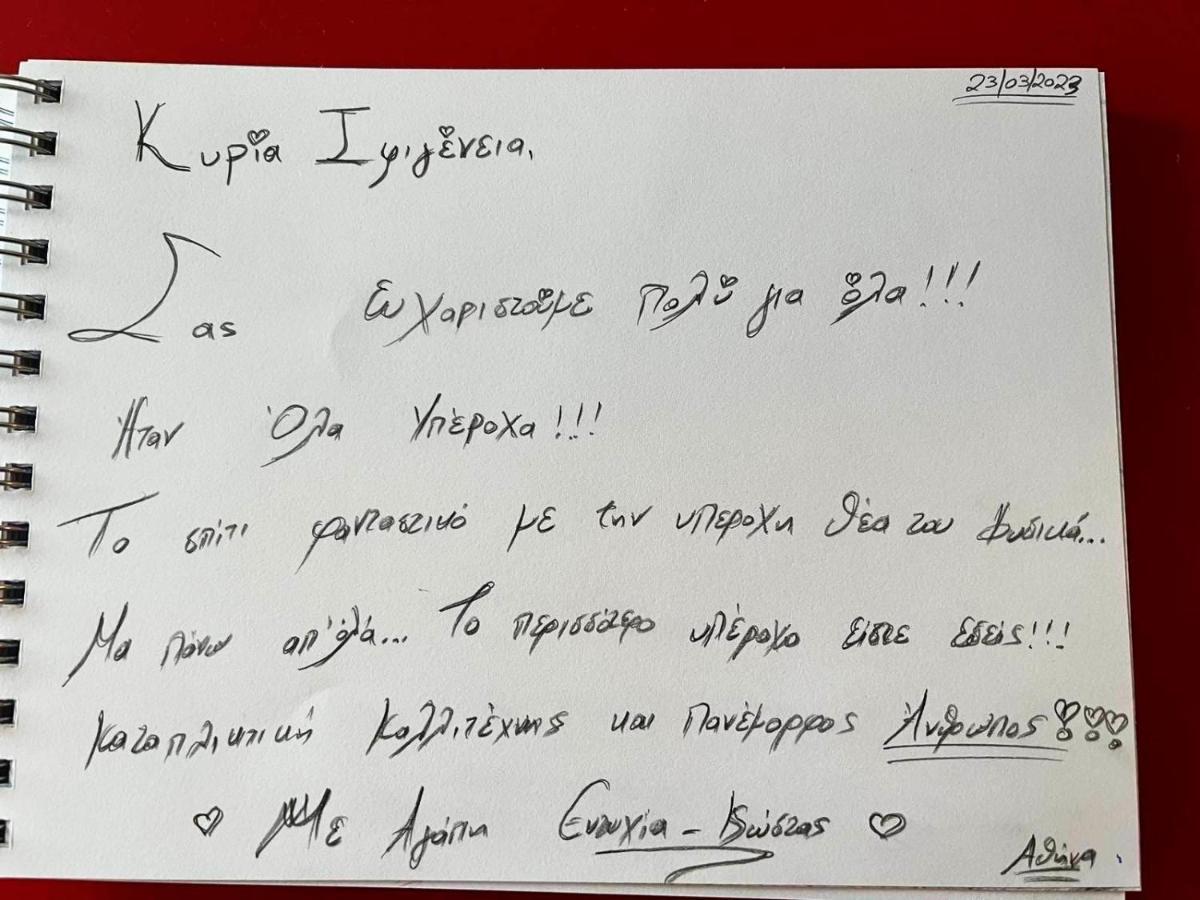 23/03/2023
Κυρία Ιφιγένεια,
Σας Ευχαριστούμε πολύ για όλα!!!
Ήταν Όλα Υπέροχα!!!
Το σπίτι φανταστικό με την υπεροχη θέα του φυσικά...
Μα πάνω απ' όλα... Το περισσότερο υπέροχο είστε εσείς!!!
Καταπλικτική Καλλιτέχνης και Πανέμορφος Άνθρωπος!!!
Με Αγάπη Ευτυχία - Κώστας
Αθήνα